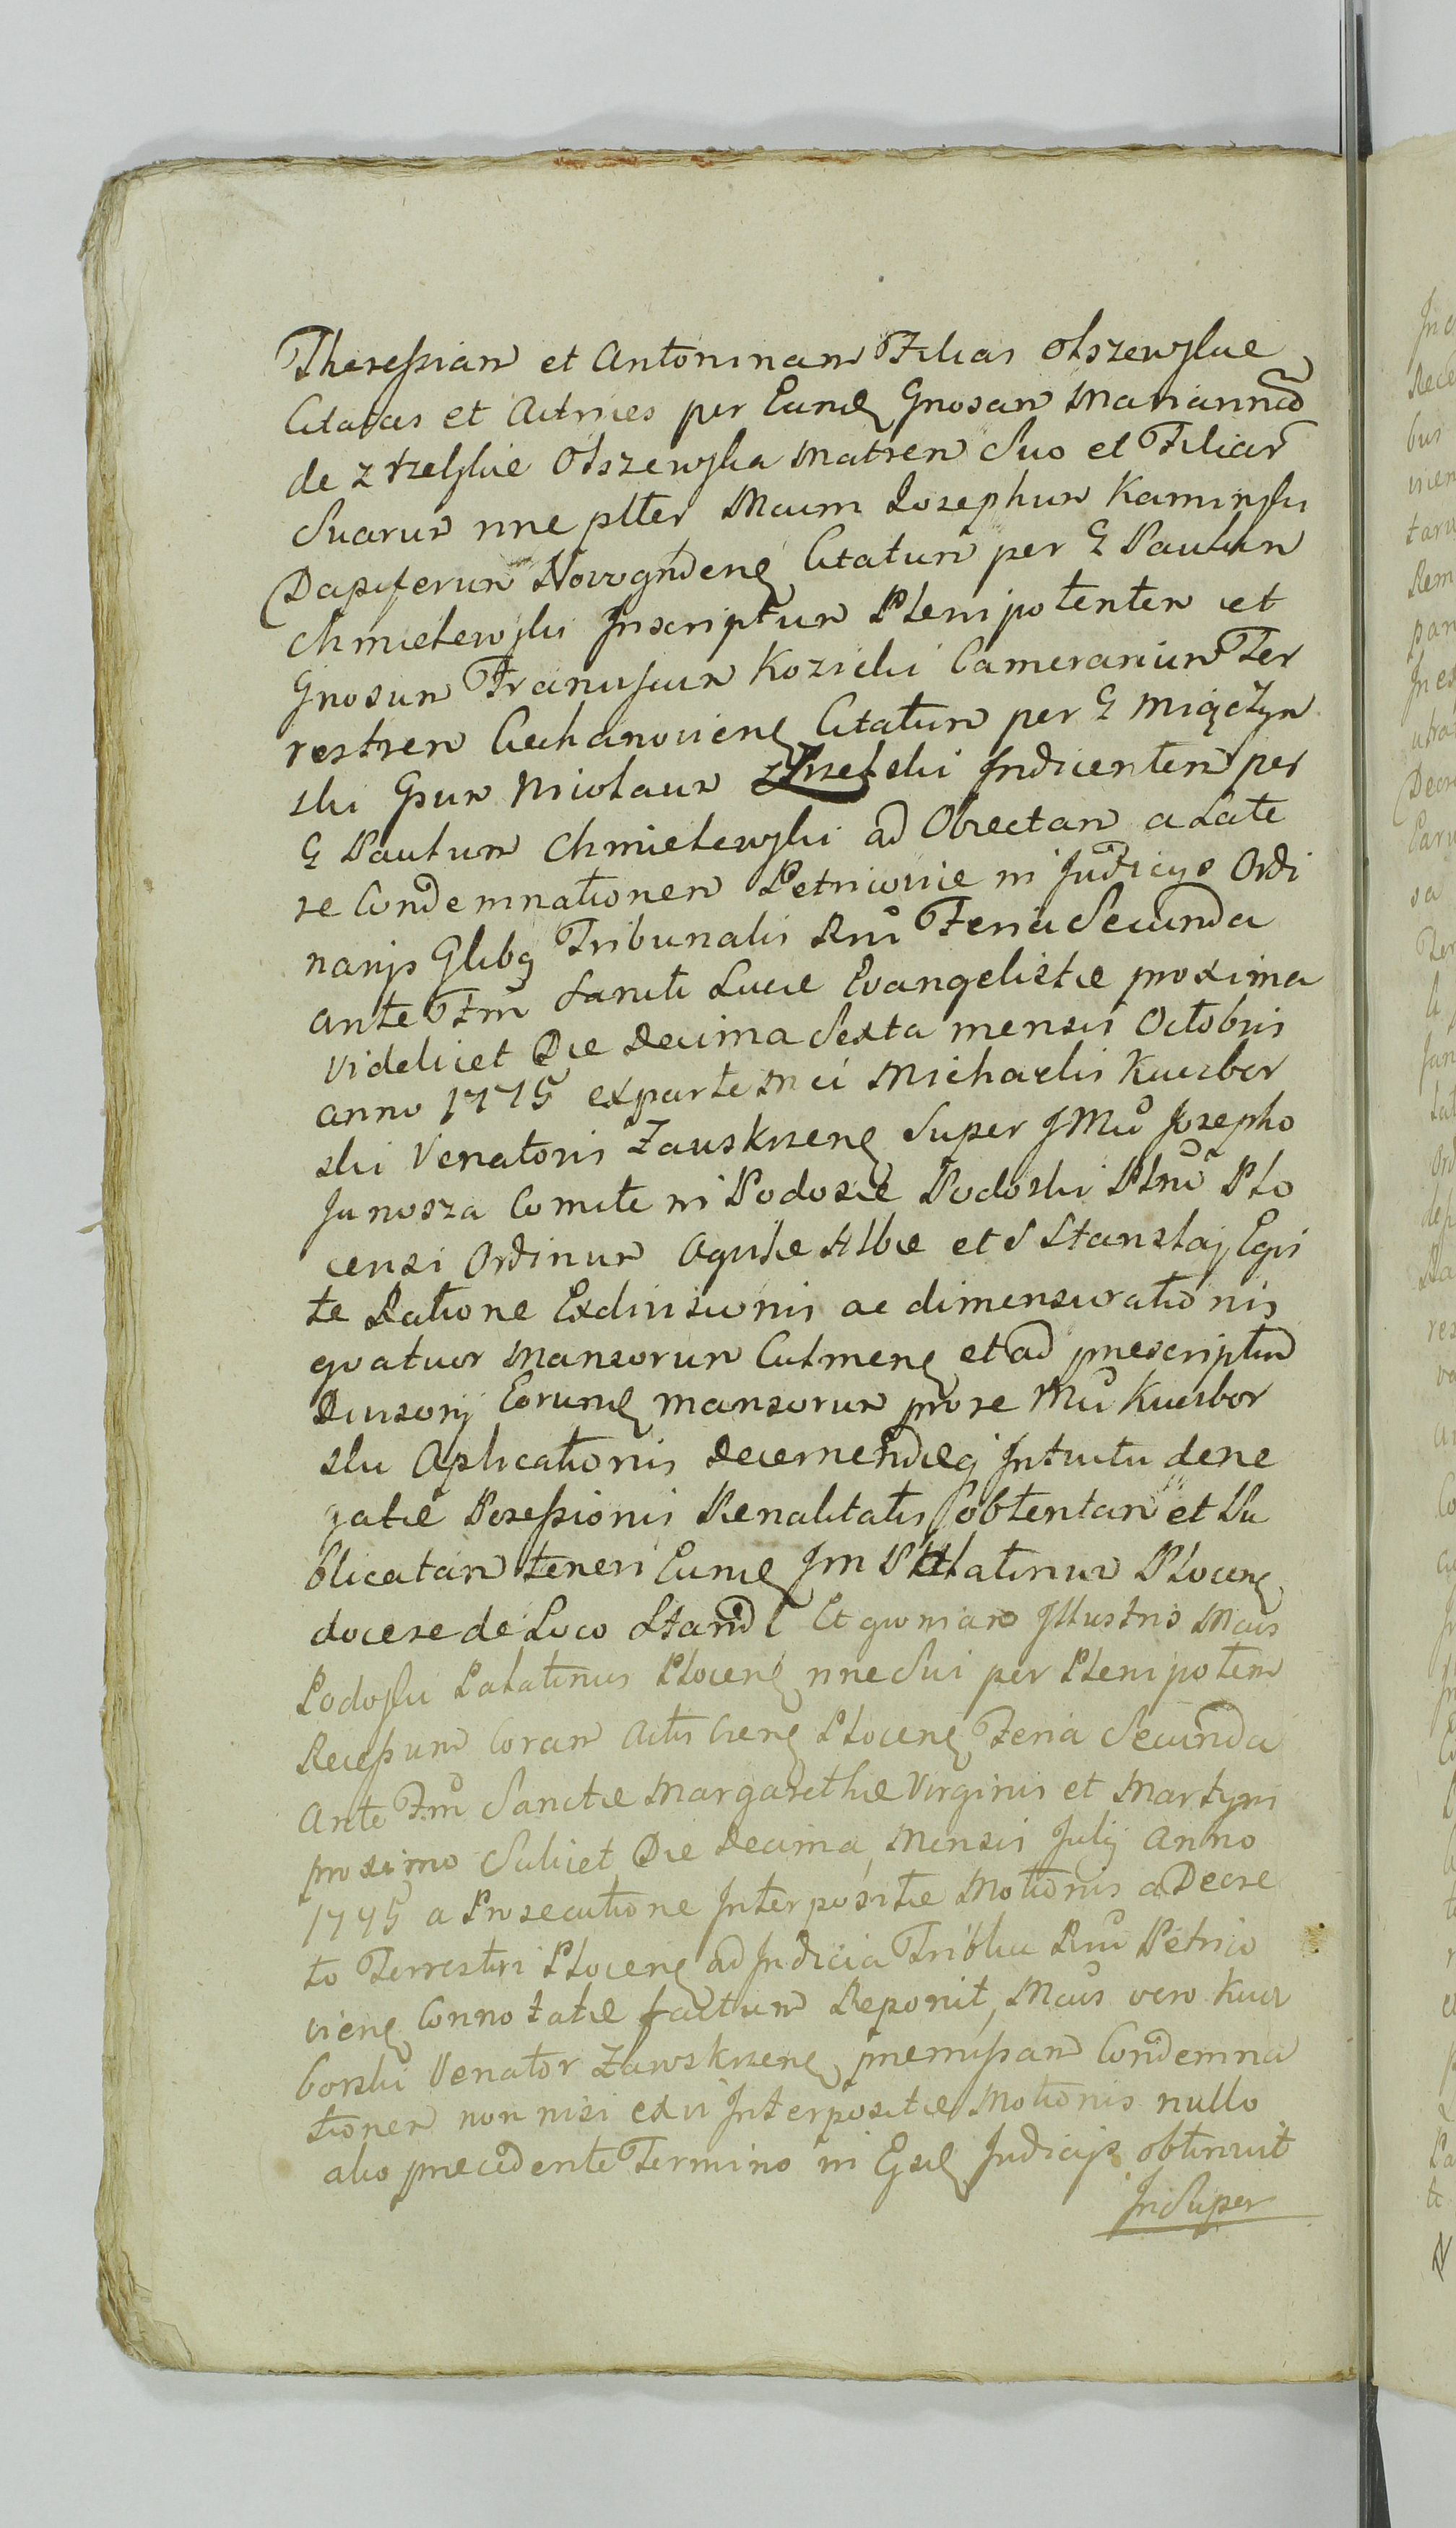 Theressiam et Antoninam Filias Olszewskie
Citatas et Actrices per Eand Gnosam Mariannã
de Zrzelskie Olszewska Matrem Suo et Filiar
Suarum nne plter Mcum Josephum Kaminski
Dapiferum Novogrdens Citatum per G Paulum
Chmielewski Inscriptum Plenipotentem et
Gnosum Franciscum Kozicki Camerarium Ter
restrem Ciechanoviens Citatum per G Miączyn
ski Gsum Nicolaum Zrzelski Indicentem per
G Paulum Chmielewski ad Obiectam a Late
re Condemnationem Petricovie in Judicijs Ordi
narijs Glibq Tribunalis Rni Feria Secunda
ante Fm Sancti Lucie Evangelistæ proxima
videlicet Die Decima Sexta mensis Octobris
anno 1775 ex parte Mci Michaelis Kucibor
ski Venatoris Zauskrzens Super JMco Josepho
Junosza Comite in Podosie Podoski Pltno Plo
censi Ordinum Aquilæ Albæ et S Stanslaj Equi
te Ratione Exdivisionis ac dimensurationis
quatuor Mansorum Culmens et ad prescriptum
Divisorij Eorund mansorum pro re Mci Kucibor
ski Aplicationis decernendæq Intuitu dene
gatæ Possessionis Pænalitatis obtentam et Pu
blicatam teneri Eund Jm Palatinum Plocens
docere de Loco Standi Et quoniam Illustris Mcus
Podoski Palatinus Plocens nne Sui per Plenipotem
Recessum Coram Actis Crens Plocens Feria Secunda
Ante Fm Sanctæ Margarethæ Virginis et Martyris
proximo Scilicet Die Decima Mensis Julij Anno
1775 a Prosecutione Interpositæ Motionis a Decre
to Terrestri Plocens ad Judicia Triblia Rni Petrico
viens Connotatæ factum Reponit, Mcus vero Kuci
borski Venator Zawskrzens premissam Condemna
tionem non nisi ex vi Interpositæ Motionis nullo
alio precedente Termino in Eisd Judicijs obtinuit
InSuper